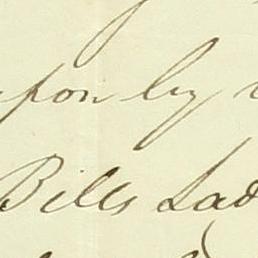 upon by
Bills Lad